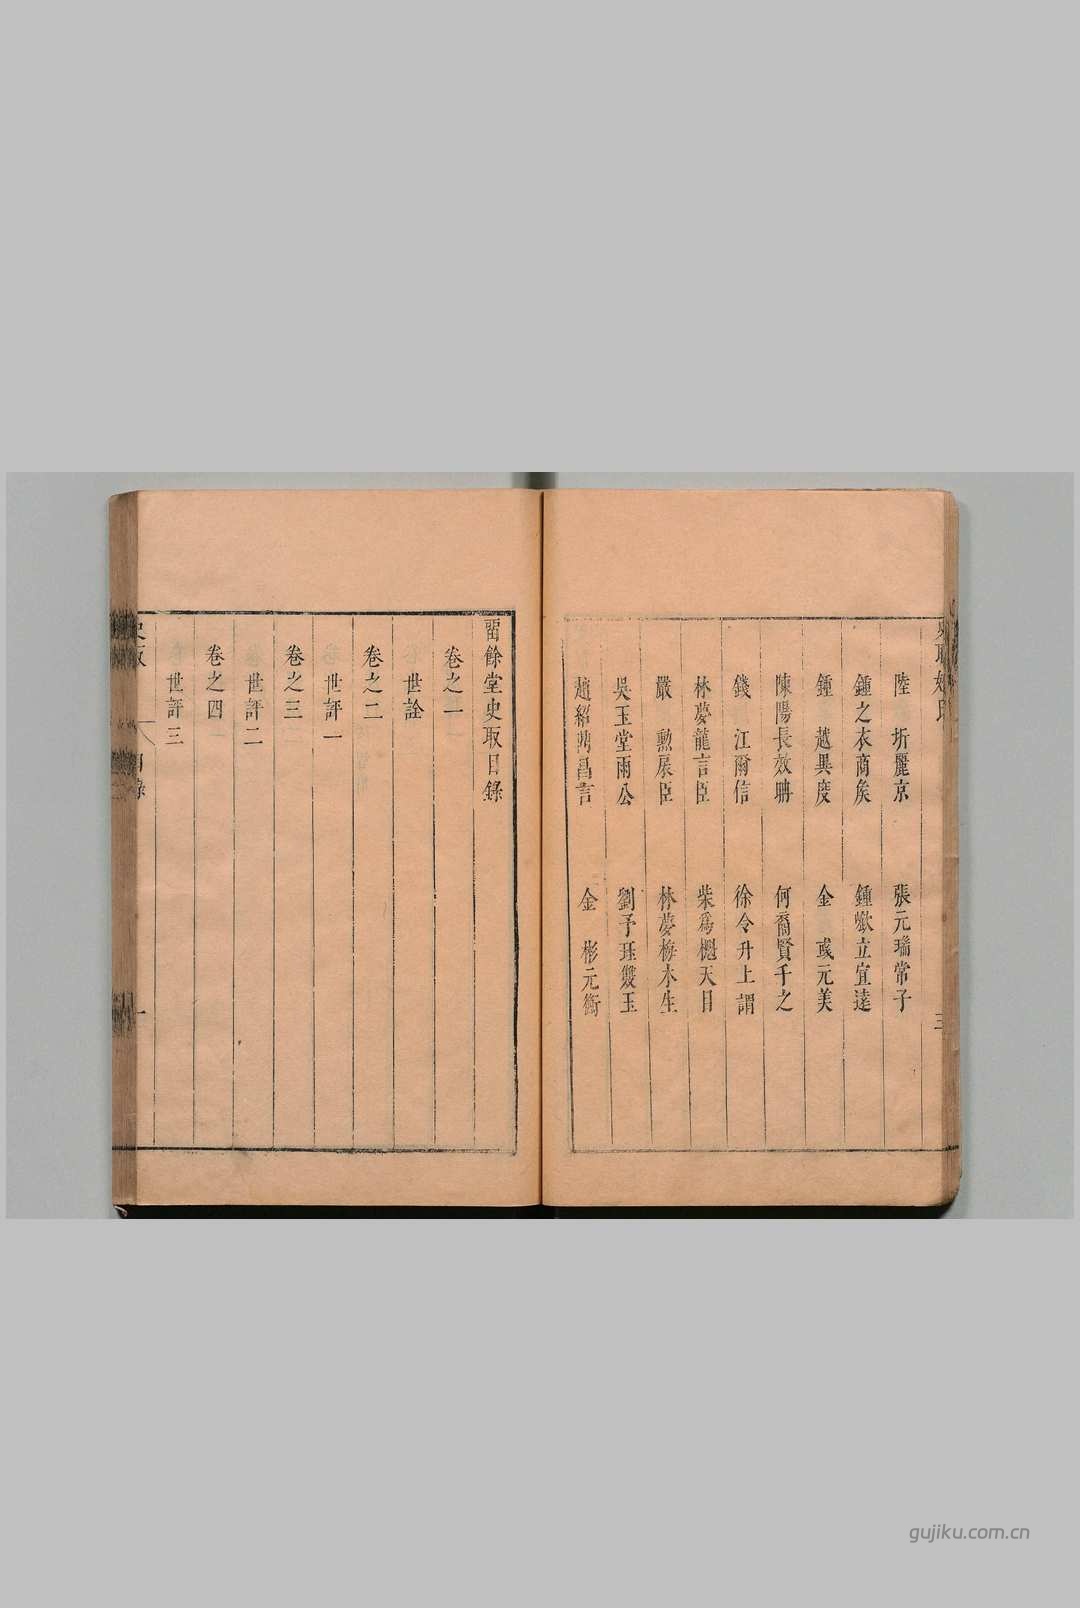 陸　圻麗京
張元瑞常子
鍾之衣商矦
鍾嶔立宜逹
鍾　越異度
金　彧元美
陳陽長效聃
何裔賢千之
錢　江爾信
徐令升上謂
林夢龍言臣
柴爲樾天目
嚴　勲扆臣
林夢梅木生
吳玉堂雨公
劉予珏䨇玉
趙紹
昌言
金　彬元衡
三
畱餘堂史取目錄
卷之一
世詮
卷之二
世評一
卷之三
世評二
卷之四
世評三
目錄
一
gujiku.com.cn